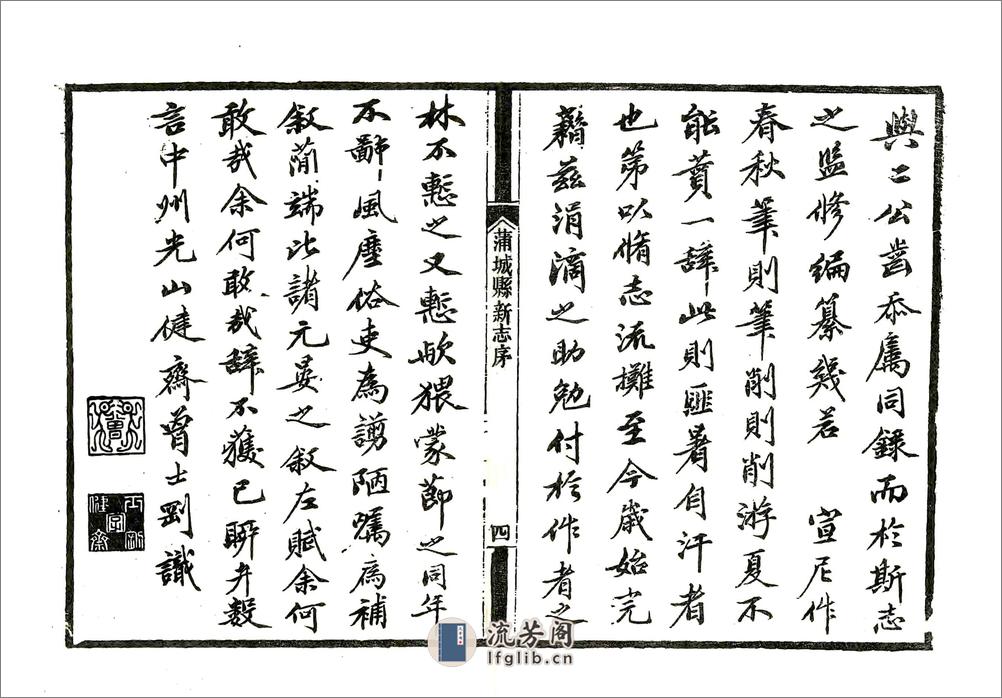 與二公齒忝屬同錄而於斯志
之監修編纂幾若　宣尼作
春秋筆則筆削則削游夏不
能賛一辭此則匪暑自汗者
也第以脩志流攤至今歲始完
藉茲涓滴之助勉付於作者之
蒲城縣新志序
四
林不慙之又慙歟猥蒙節之同年
不鄙風塵俗吏為謭陋囑為補
敘簡端比諸元晏之敘左賦余何
敢哉余何敢哉辭不獲已聊弁數
言中州光山健齋曾士剛識
流芳阁
lfglib.cn